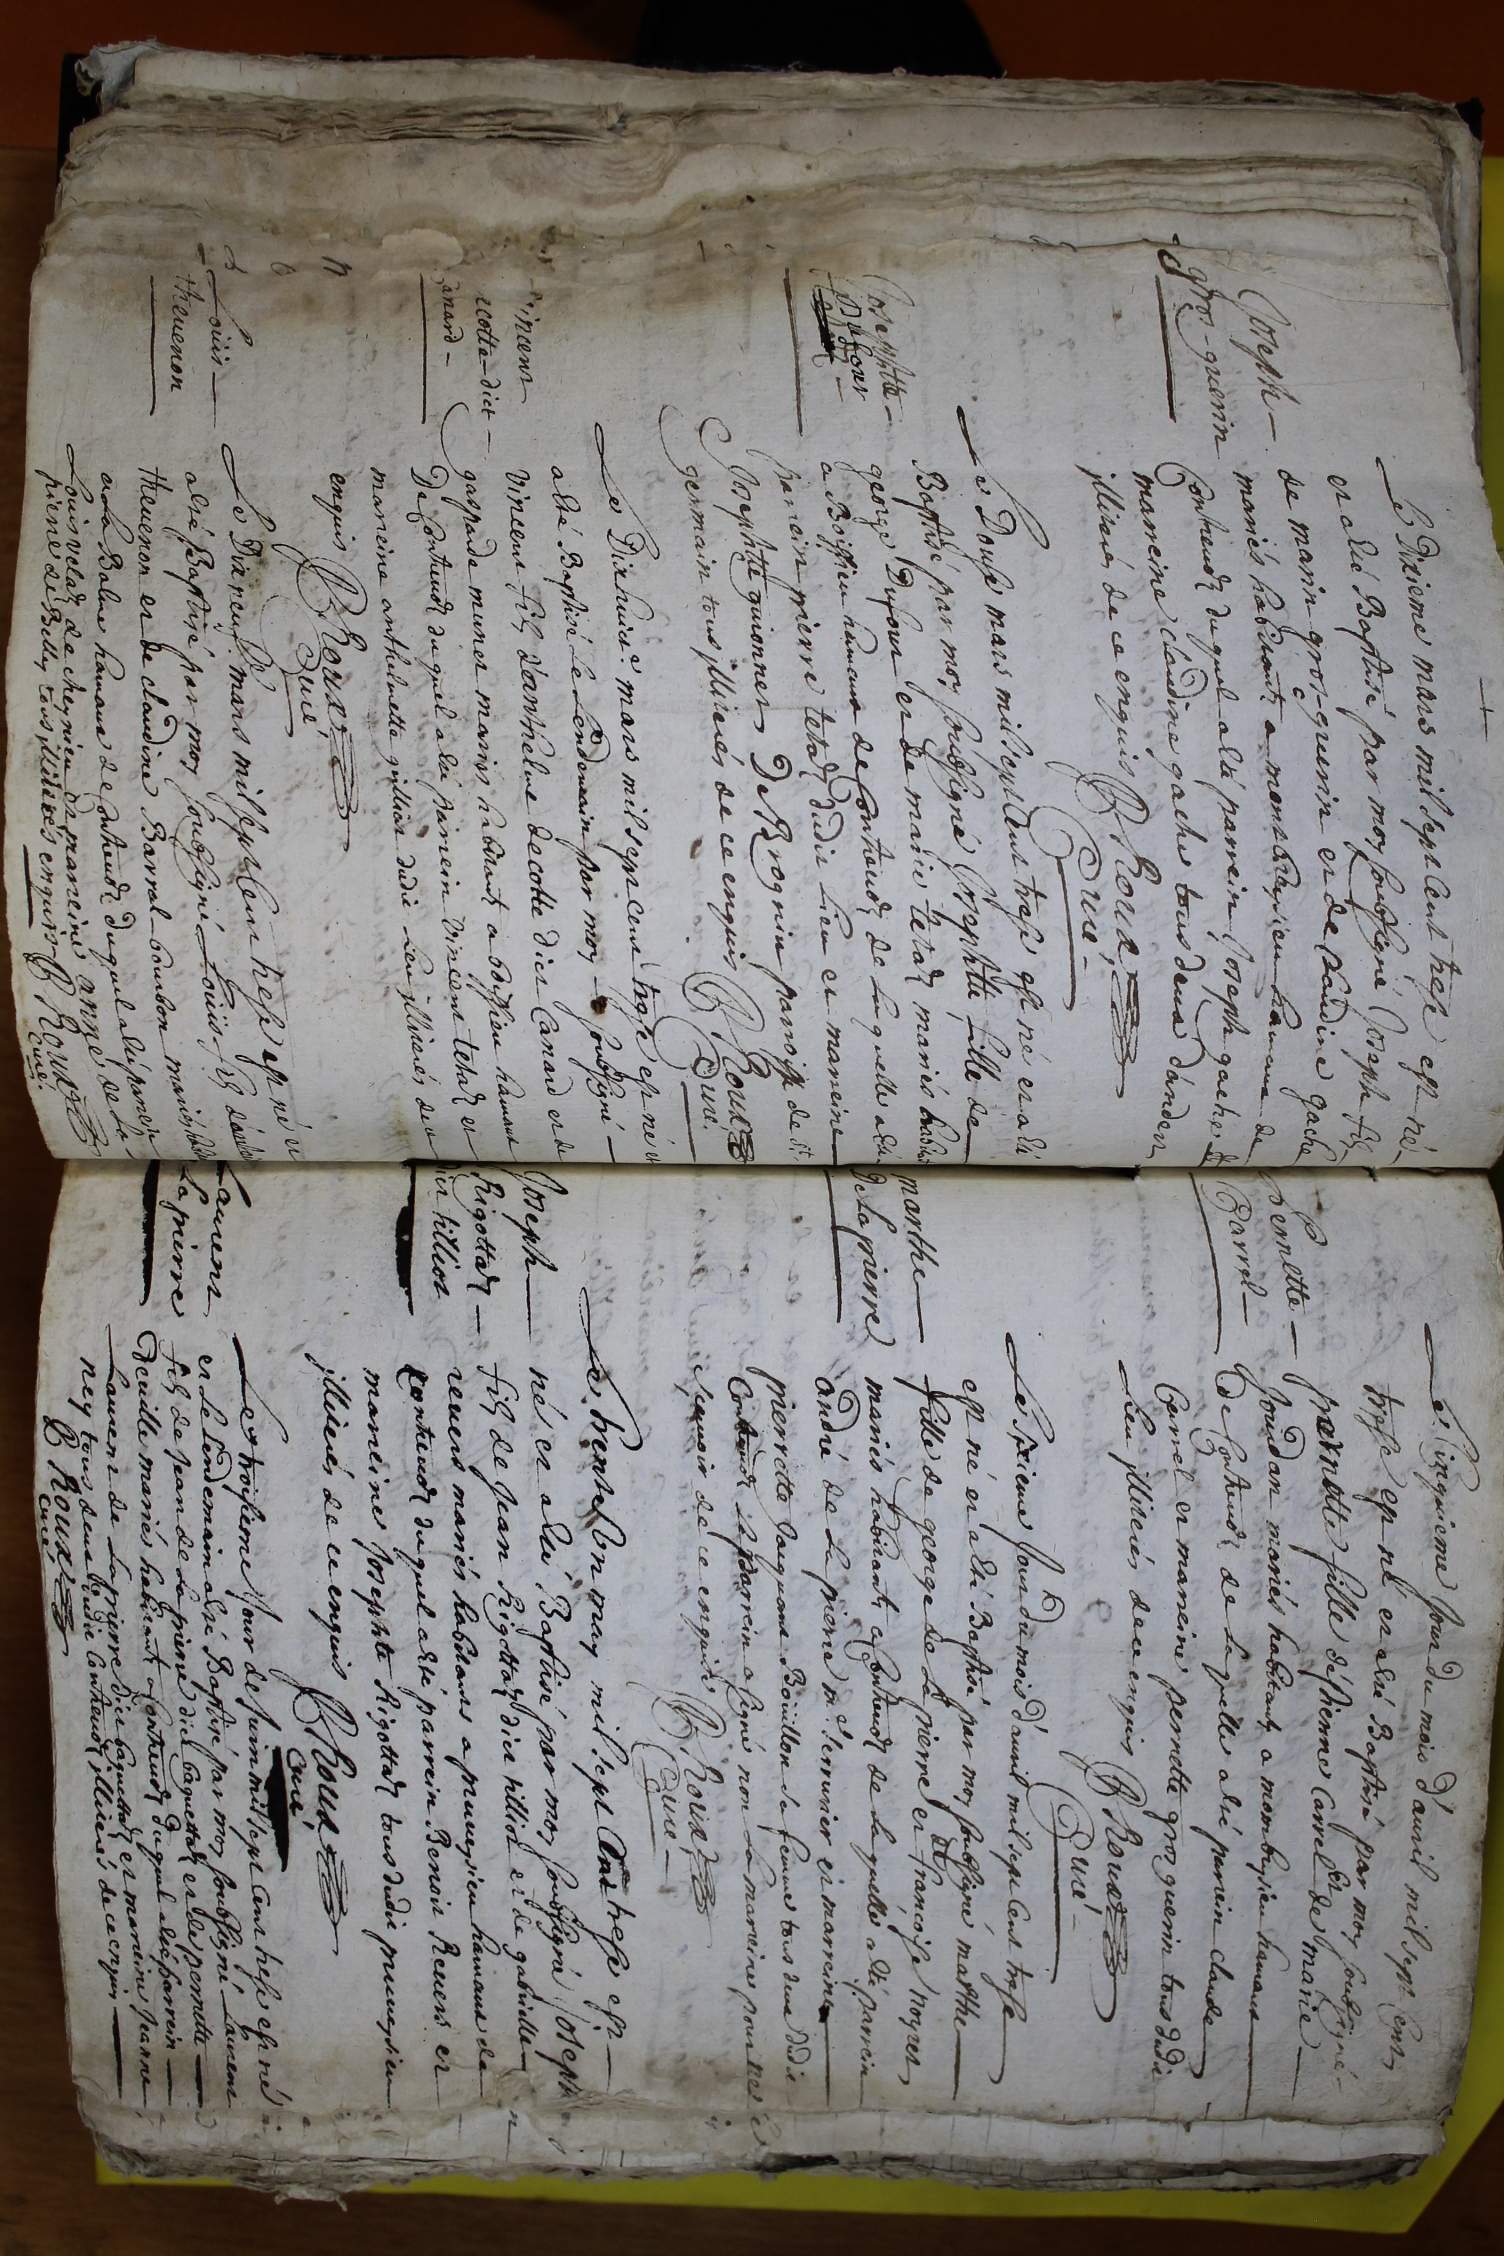 Joseph
gros-guerin
Le Dixieme mars mil sept Cent trese est né
et a esté Baptisé par moy soubsigné Joseph fils
de marin gros-guerin et de Claudine gache
mariés habitants a montbeysieu hameau de
Contrevoz duquel a esté parrein Joseph gache
marreine Claudine gache tous deux d'andert
illiterés de ce enquis B Roux
Curé
Josephtte
Dufour
Le Douse mars mil sept Cent trese est né et a esté
Baptisé par moy soubsigné Josephtte fille de
george Dufour et de marie tetaz mariés
a Boissieu hameau de Contrevoz de laquelle a esté
parrein pierre tetaz dudit lieu et marreine
Josephtte guionnet De Brognin parroisse de St
germain tous illiterés de ce enquis B Roux
Curé
vincent
decotte-dict
Canard
Le Dixhuict mars mil sept cent trese est né et
a esté Baptisé le Lendemain par moy soubsigné
vincent fils d'anthelme decotte dict Canard et de
gasparde munet mariés habitants a boissieu hameau
De Contrevoz duquel a esté parrein vincent tetaz et
marreine anthelmette dudit lieu illiterés de ce
enquis B Roux
Curé
Louis
thevenon
Le Dixneuf mars mil sept Cent trese est né et
a esté Baptisé par moy soubsigné Louis fils
thevenon et de claudine Barral-bourbon mariés
a la Balme hameau de Contrevoz duquel a esté parrein
Louis velaz de cheynieu et marreine anne de la
pierre de Belley tous illiterés enquis B Roux
Curé
Pernette
Carrel
Le Cinquieme Jour du mois d'auril mil sept Cent
trese est né et a esté Baptisé par moy soubsigné
pernette fille d'estienne Carrel et de marie
Jourdan mariés habitants a montbeysieu hameau
De Contrevoz de laquelle a esté parrein claude
Carrel et marreine pernette gros guerin tous dudit
lieu illiterés de ce enquis B Roux
Curé
marthe
de la pierre
Le Jour du mois d'auril mil sept Cent trese
est né et a esté Baptisé par moy soubsigné marthe
fille de george de la pierre et de francoise
mariés habitants a Contrevoz de laquelle a esté parrein
andré de la pierre me serrurier et marreine
pierrette Bouillon sa femme tous deux dudit
Contrevoz le parrein a signé non la marreine pour ne
scauoir de ce enquis B Roux
Curé
Joseph
Rigottaz
dit hilliot
Le trente En may mil sept Cent trese est
né et a esté Baptisé par moy soubsigné Joseph
fils de Jean Rigottaz dict hilliot et de gabrielle
reuers mariés habitans a pruueysieu hameau de
Contrevoz duquel a esté parrein Benoit Reuers et
marreine Josephte Rigottaz tous dudit pruueysieu
illiterés de ce enquis B Roux
Curé
Laurent
La pierre
Le troisieme Jour de Juin mil sept Cent trese est né
et le Lendemain a esté Baptisé par moy soubsigné Laurent
fils de Jean de la pierre dict baguettaz et de pernette
deuille mariés habitant a Contrevoz duquel a esté parrein
Laurent de la pierre dict baguettaz et marreine Jeanne
ney tous deux dudit Contrevoz illiterés de ce enquis
B Roux
Curé